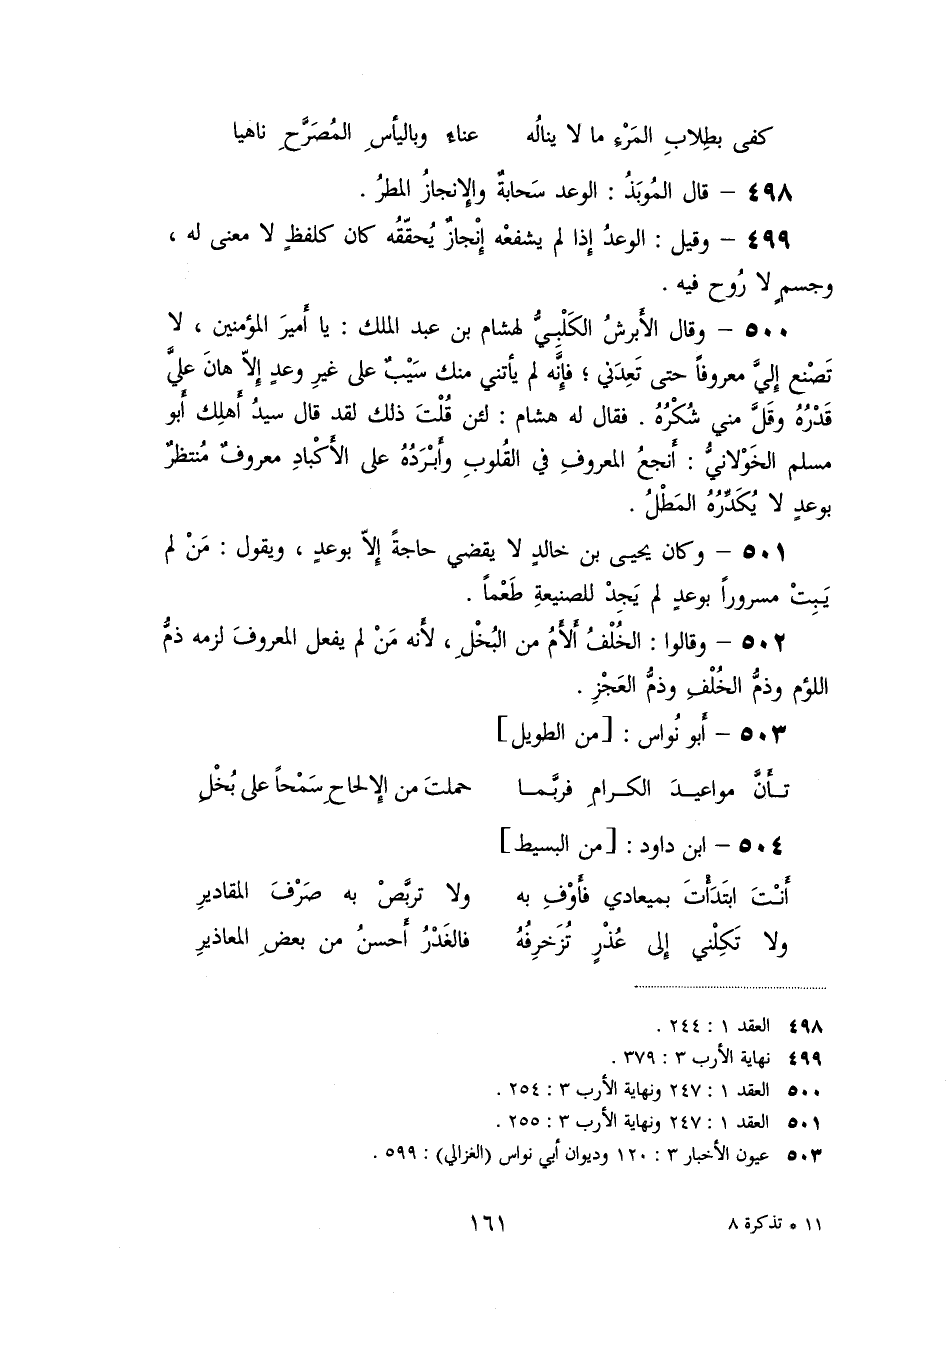 كفى بطِلابِ المَرْءِ ما لا ينالُه عناء وباليأسِ المُصَرَّحِ ناهيا
٤٩٨ – قال المُوبَذُ : الوعد سَحابةٌ والإنجازُ المطرُ .
٤٩٩ – وقيل : الوعدُ إذا لم يشفعْه إنْجازٌ يُحقّقُه كان كلفظٍ لا معنى له ،
وجسمٍ لا رُوح فيه .
٥٠٠ – وقال الأَبرشُ الكَلْبِيُّ لهشام بن عبد الملك : يا أَميرَ المؤمنين ، لا
تَصْنع إليَّ معروفاً حتى تَعِدَني ؛ فإنَّه لم يأتني منك سَيْبٌ على غيرِ وعدٍ إلاّ هانَ عليَّ
قَدْرُهُ وقَلَّ مني شُكْرُهُ . فقال له هشام : لئن قُلْتَ ذلك لقد قال سيدُ أهلِك أَبو
مسلم الخَوْلانيُّ : أَنجعُ المعروفِ في القُلوبِ وأَبْرَدُهُ على الأَكْبادِ معروفٌ مُنتظرٌ
بوعدٍ لا يُكَدِّرُهُ المَطْلُ .
٥٠١ – وكان يحيى بن خالدٍ لا يقضي حاجةً إلاّ بوعدٍ ، ويقول : مَنْ لم
يَبِتْ مسروراً بوعدٍ لم يَجِدْ للصنيعةِ طَعْماً .
٥٠٢ – وقالوا : الخُلْفُ أَلأَمُ من البُخْلِ ، لأَنه مَنْ لم يفعل المعروفَ لزمه ذمُّ
اللؤم وذمُّ الخُلْفِ وذمُّ العَجْزِ .
٥٠٣ – أَبو نُواس : [من الطويل]
تـأَنَّ مواعيـدَ الكـرامِ فربَّمـا حملتَ من الإلحاحِ سَمْحاً على بُخْلِ
٥٠٤ – ابن داود : [من البسيط]
أَنْتَ ابتَدَأْتَ بميعادي فأَوْفِ به ولا تربَّصْ به صَرْفَ المقاديرِ
ولا تَكِلْني إلى عُذْرٍ تُزَخرِفُهُ فالغَدْرُ أَحسنُ من بعضِ المعاذيرِ
٤٩٨ العقد ١ : ٢٤٤ .
٤٩٩ نهاية الأرب ٣ : ٣٧٩ .
٥٠٠ العقد ١ : ٢٤٧ ونهاية الأرب ٣ : ٢٥٤ .
٥٠١ العقد ١ : ٢٤٧ ونهاية الأرب ٣ : ٢٥٥ .
٥٠٣ عيون الأخبار ٣ : ١٢٠ وديوان أبي نواس (الغزالي) : ٥٩٩ .
١١ ٥ تذكرة ٨ ١٦١